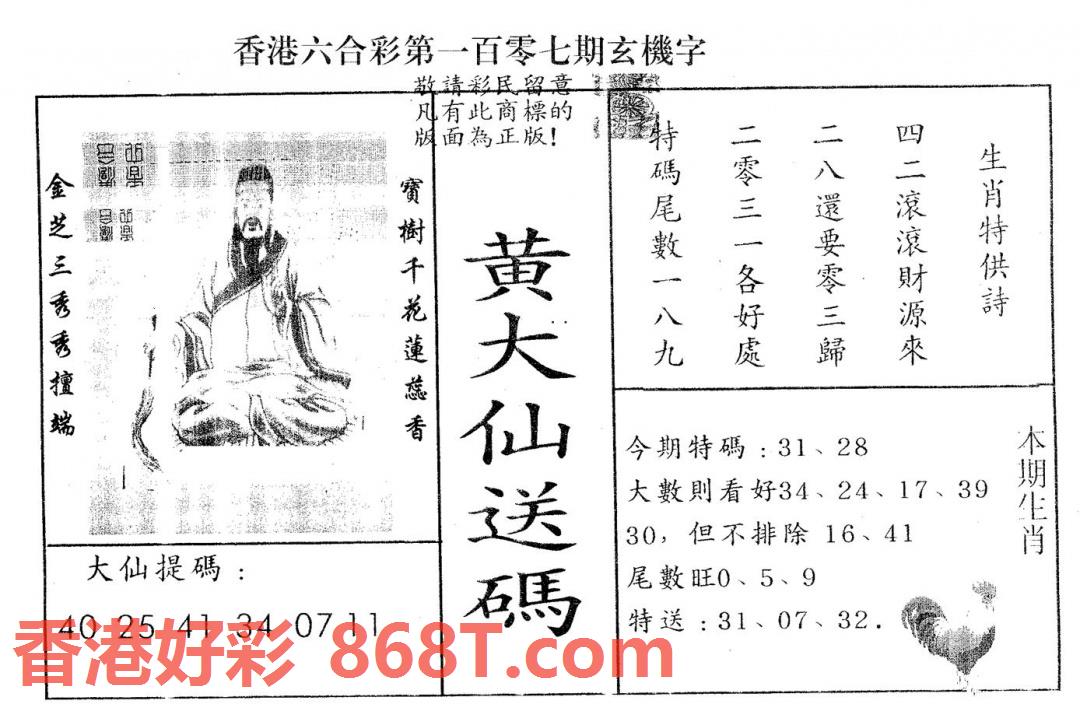 香港六合彩第一百零七期玄機字
敬請彩民留意
凡有此商標的
版面為正版!
寶樹千花蓮蕊香
金芝三秀秀擅端
大仙提碼:
40 25 41 34 07 11
黄大仙送碼
生肖特供詩
四二滾滾財源來
二八還要零三歸
二零三一各好處
特碼尾數一八九
本期生肖
今期特碼:31、28
大數則看好34、24、17、39
30,但不排除 16、41
尾數旺0、5、9
特送:31、07、32.
香港好彩 868T.com